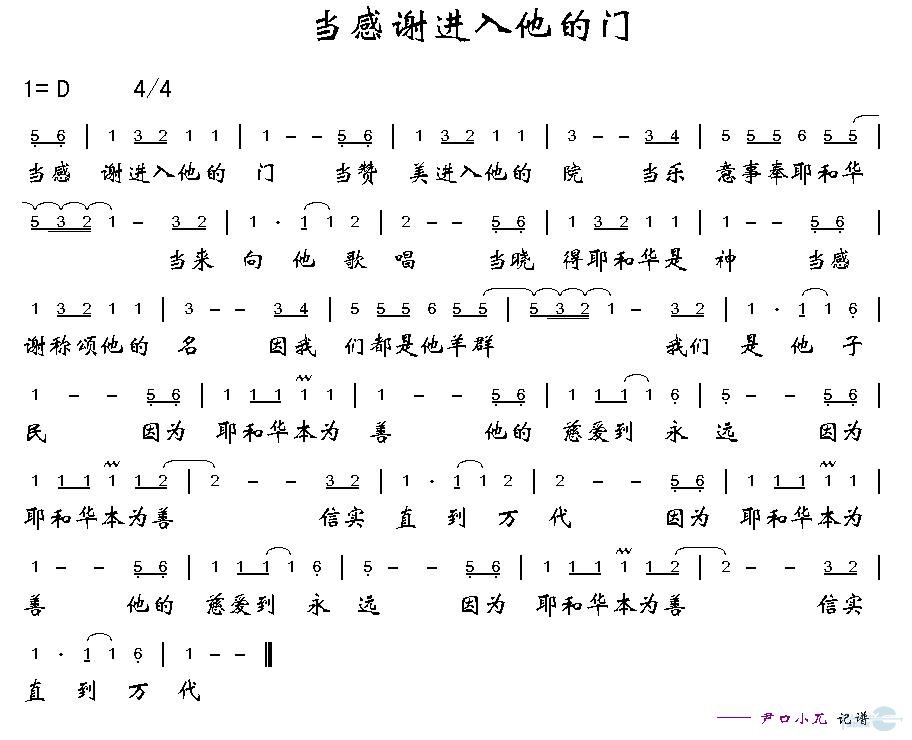 当感谢进入他的门
1= D 4/4
5 6 | 1 3 2 1 1 | 1 - - 5 6 | 1 3 2 1 1 | 3 - - 3 4 | 5 5 5 6 5 5 |
当感 谢进入他的 门 当赞 美进入他的 院 当乐 意事奉耶和华
5 3 2 1 - 3 2 | 1 · 1 1 2 | 2 - - 5 6 | 1 3 2 1 1 | 1 - - 5 6 |
当来 向 他 歌 唱 当晓 得耶和华是 神 当感
1 3 2 1 1 | 3 - - 3 4 | 5 5 5 6 5 5 | 5 3 2 1 - 3 2 | 1 · 1 1 6 |
谢称颂他的 名 因我 们都是他羊群 我们 是 他 子
1 - - 5 6 | 1 1 1 1 1 | 1 - - 5 6 | 1 1 1 1 6 | 5 - - 5 6 |
民 因为 耶和华本为 善 他的 慈爱到 永 远 因为
1 1 1 1 1 2 | 2 - - 3 2 | 1 · 1 1 2 | 2 - - 5 6 | 1 1 1 1 1 |
耶和华本为善 信实 直 到 万 代 因为 耶和华本为
1 - - 5 6 | 1 1 1 1 6 | 5 - - 5 6 | 1 1 1 1 1 2 | 2 - - 3 2 |
善 他的 慈爱到 永 远 因为 耶和华本为善 信实
1 · 1 1 6 | 1 - - ‖
直 到 万 代
—— 尹口小兀 记谱